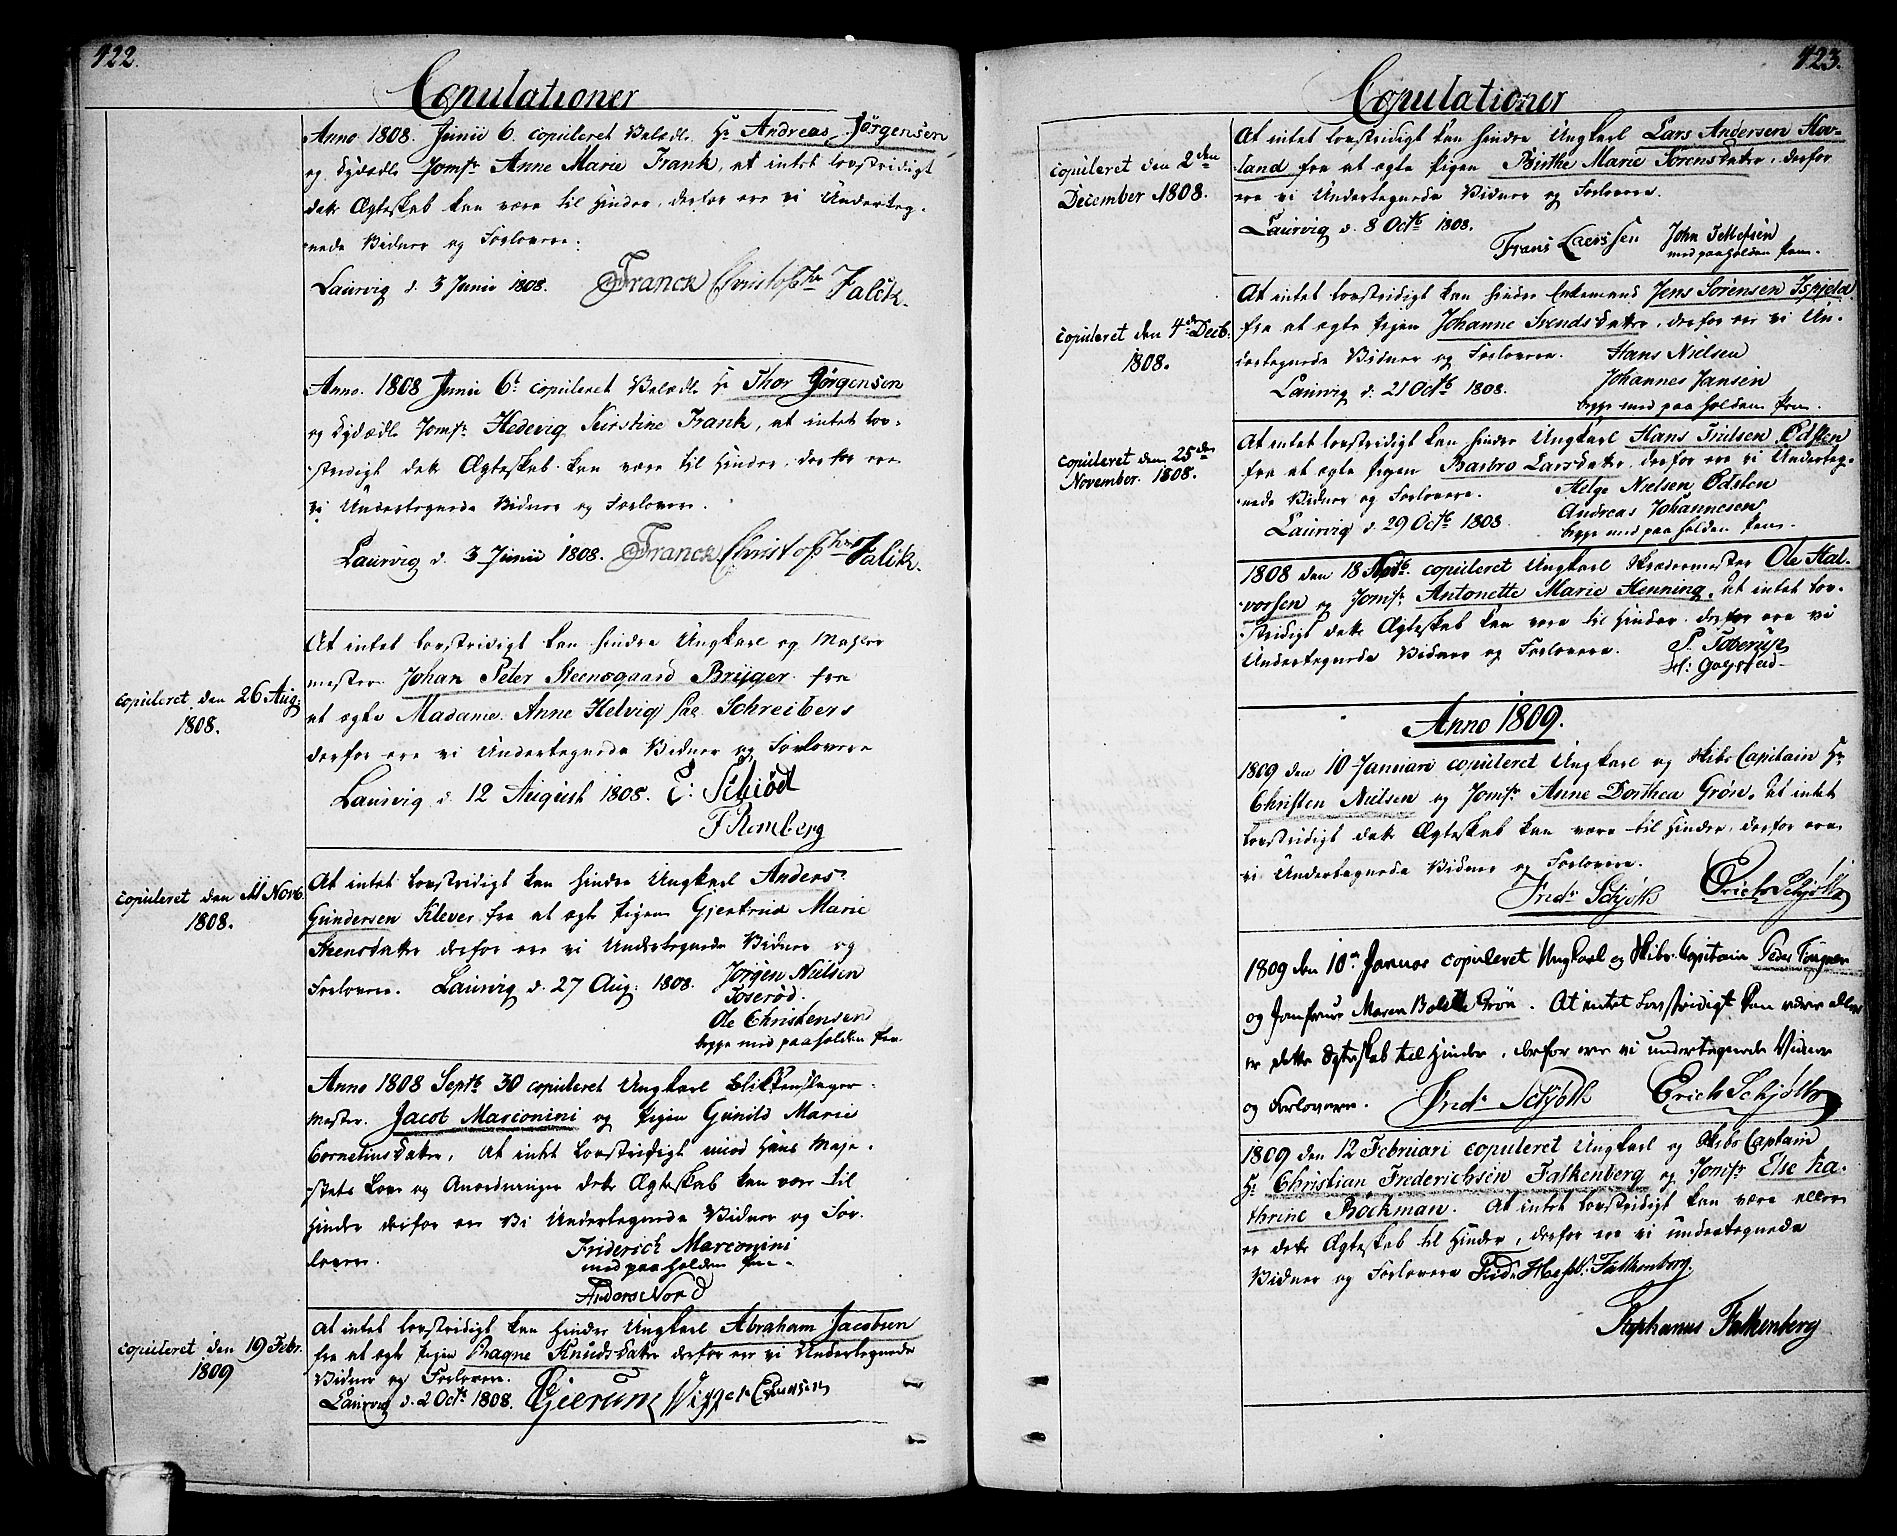 422.
Copulationer
Anno 1808 Junii 6. copuleret Velædle Hr Andreas Jörgensen
og Dydædle Jomfr Anne Marie Frank, at intet lovstridigt
dette Ægteskab kan være til Hinder, derfor ere vi Underteg-
nede Vidner og Forlovere.
Laurvig d. 3 Junii 1808. Franck Christoph Falck.
Anno. 1808 Junii 6t copuleret Velædle Hr Thor Jörgensen
og Dydædle Jomfr Hedevig Kirstine Frank, at intet lov-
stridigt dette Ægteskab kan være til Hinder, derfor ere
vi Undertegnede Vidner og Forlovere.
Laurvig d. 3 Junii 1808. Franck Christoph Falck.
copuleret den 26 Aug:
1808.
At intet lovstridigt kan hindre Ungkarl og Mahler
mester Johan Peter Steensgaard Bruger fra
at ægte Madame Anne Helvig sal. Schreibers
derfor ere vi Undertegnede Vidner og Forlovere
Laurvig d. 12 August 1808. E: Schiød
F Romberg
copuleret den 11 Novb
1808.
At intet Lovstridigt kan Hindre Ungkarl Anders
Gundersen Klever fra at ægte Pigen Gjertrud Marie
Steensdatter derfor ere vi Undertegnede Vidner og
Forlovere. Laurvig d. 27 Aug: 1808. Jørgen Nielsen
Foserød.
Ole Christensen
begge med paaholden Pen.
Anno 1808 Septb 30 copuleret Ungkarl Blikkenslager-
mester Jacob Marconini og Pigen Gunild Marie
Corneliusdatter, At intet Lovstridigt imod Hans Maje-
stets Love og Anordninger dette Ægteskab kan være til
Hinder derfor ere Vi Undertegnede Vidner og For-
lovere. Friderich Marconini
med paaholden Pen.
Anders Nord
copuleret den 19 Febr.
1809
At intet lovstridigt kan hindre Ungkarl Abraham Jacobsen
fra at ægte Pigen Dragne Knudsdatter derfor ere vi Undertegnede
Vidner og Forlovere.
Laurvig d. 2 Octb 1808. Gierum
423.
Copulationer
copuleret den 2den
December 1808.
At intet lovstridigt kan hindre Ungkarl Lars Andersen Hov-
land fra at ægte Pigen Birthe Marie Sörensdatter, derfor
ere vi Undertegnede Vidner og Forlovere.
Laurvig d. 8 Octb 1808. Frans Larssen John Tellefsen
med paaholden Pen.
copuleret den 4de Decb.
1808.
At intet lovstridigt kan hindre Enkemand Jens Sörensen Ispjeld
fra at ægte Pigen Johanne Svendsdatter, derfor ere vi Un-
dertegnede Vidner og Forlovere. Hans Nielsen
Laurvig d. 21 Octb 1808. Johannes Jansen
begge med paaholden Pen.
copuleret den 25de
November. 1808.
At intet lovstridigt kan hindre Ungkarl Hans Trulsen Ødsten
fra at ægte Pigen Barbro Larsdatter, derfor ere vi Underteg-
nede Vidner og Forlovere. Helge Nielsen Ødsten
Laurvig d. 29 Octb 1808 Andreas Johannesen
begge med paaholden Pen.
1808 den 18 Novb. copuleret Ungkarl Skrædermester Ole Hal-
vorsen og Jomfr Antonette Marie Henning, At intet lov-
stridigt dette Ægteskab kan være til Hinder, derfor ere vi
Undertegnede Vidner og Forlovere. P. Toberup
Anno 1809.
1809 den 10 Januari copuleret Ungkarl og Skibs Capitain Hr
Christen Nielsen og Jomfr Anne Dorthea Grön, At intet
Lovstridigt dette Ægteskab kan være til Hinder, derfor ere
vi Undertegnede Vidner og Forlovere.
Fredr Schjøth Erich Schjøth
1809 den 10de Januar copuleret Ungkarl og Skibs-Capitain Peder
og Jomfrue Maren Bolette Grön. At intet Lovstridigt kan være eller
er dette Ægteskab til Hinder, derfor ere vi undertegnede Vidner
og Forlovere. Fredr Schjøth Erich Schjøth
1809 den 12 Februari copuleret Ungkarl og Skibs Captain
Hr Christian Frederichsen Falkenberg og Jomfr Else Ka-
thrine Böckman. At intet lovstridigt kan være eller
er dette Ægteskab til Hinder, derfor ere vi undertegnede
Vidner og Forlovere Falkenberg.
Stephanus Falkenberg